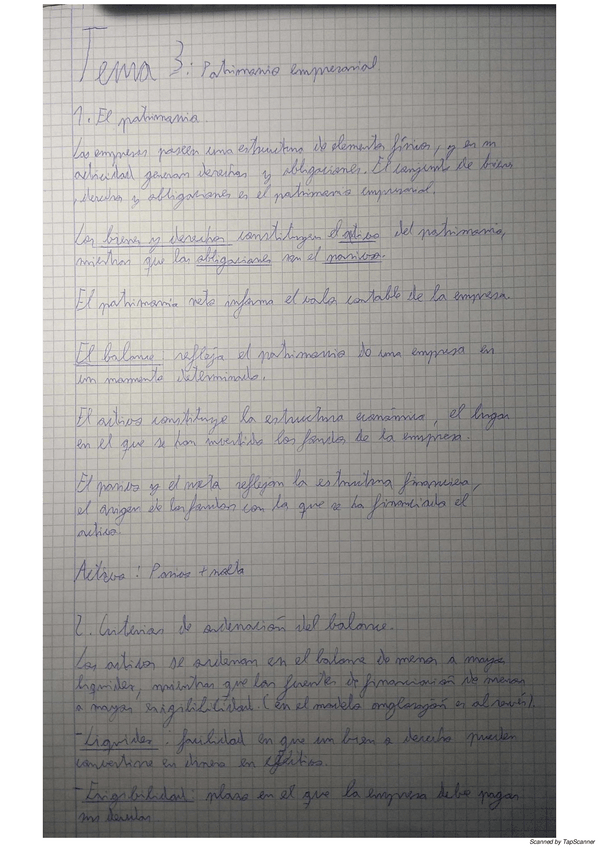 Tema 3: Patrimonio empresarial
1. El patrimonio
Las empresas poseen una estructura de elementos físicos, y en su
actividad generan derechos y obligaciones. El conjunto de bienes
, derechos y obligaciones es el patrimonio empresarial.
Los bienes y derechos constituyen el activo del patrimonio,
mientras que las obligaciones son el pasivo.
El patrimonio neto informa el valor contable de la empresa
El balance refleja el patrimonio de una empresa en
un momento determinado.
El activo constituye la estructura económica, el lugar
en el que se han invertido los fondos de la empresa.
El pasivo y el neto reflejan la estructura financiera,
el origen de los fondos con la que se ha financiado el
activo
Activo: Pasivo + neto
2. Criterios de ordenación del balance.
Los activos se ordenan en el balance de menos a mayor
liquidez, mientras que las fuentes de financiación de menos
a mayor exigibilidad (en el modelo anglosajón es al revés).
- Liquidez: facilidad en que un bien o derecho pueden
convertirse en dinero en efectivo.
- Exigibilidad: plazo en el que la empresa debe pagar
sus deudas
Scanned by TapScanner